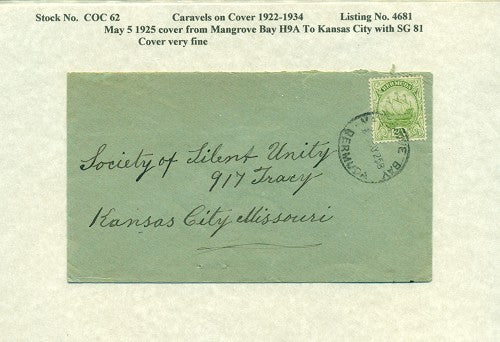 Stock No. COC 62 Caravels on Cover 1922-1934 Listing No. 4681
May 5 1925 cover from Mangrove Bay H9A To Kansas City with SG 81
Cover very fine
BERMUDA
BAY
BERMUDA
Society of Silent Unity
917 Tracy
Kansas City Missouri